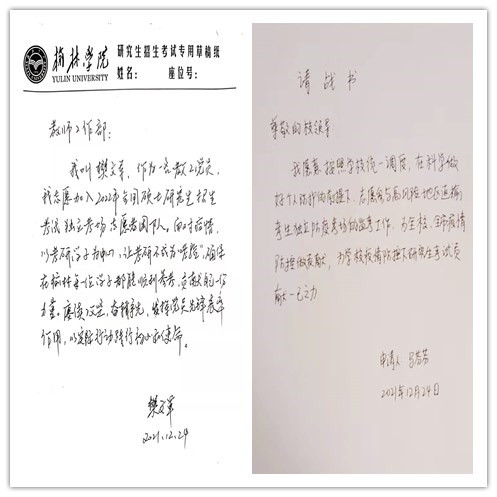 榆林学院
YULIN UNIVERSITY
研究生招生考试专用草稿纸
姓名：
座位号：
教师工作部：
我叫樊文军，作为一名教工党员，
我志愿加入2022年全国硕士研究生招生
考试独立考场志愿者团队。面对疫情，
以考研学子为中心，让考研不成为"考险"确保
在榆林每一位学子都能顺利参考，贡献我的一份
力量。廉洁
作用，以实际行动践行初心和使命。
樊文军
2021.12.24
请战书
尊敬的校领导
我愿意按照学校统一调度，在科学做
好个人防护的前提下，志愿参与高风险地区返榆
考生独立防疫考场的监考工作，为全校、全市疫情
防控做贡献，为学校疫情防控下研究生考试贡
献一己之力
申请人
2021年12月24日